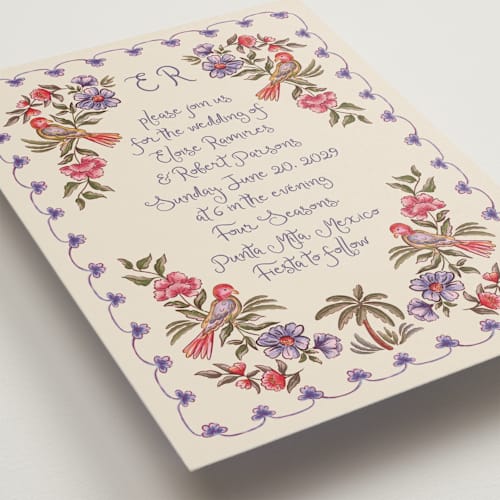 E R
please join us
for the wedding of
Eloise Ramires
& Robert Parsons
Sunday June 20. 2029
at 6 in the evening
Four Seasons
Punta Mita Mexico
Fiesta to follow